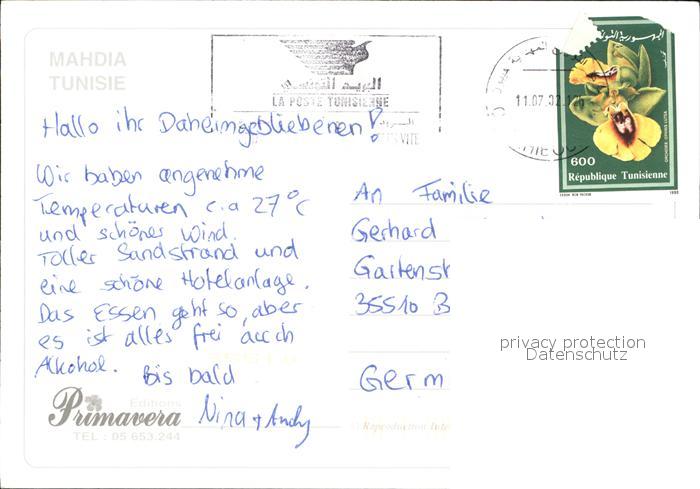 MAHDIA
TUNISIE
البريد التونسي
LA POSTE TUNISIENNE
Hallo ihr Daheimgebliebenen!
Wir haben angenehme
Temperaturen c.a 27°C
und schöner Wind.
Toller Sandstrand und
eine schöne Hotelanlage.
Das Essen geht so, aber
es ist alles frei auch
Alkohol.
Bis bald
Nina + Andy
Editions
Primavera
TEL : 05 653.244
11.07.
600
République Tunisienne
An Familie
Gerhard
Gartenst
35510 B
Germ
privacy protection
Datenschutz